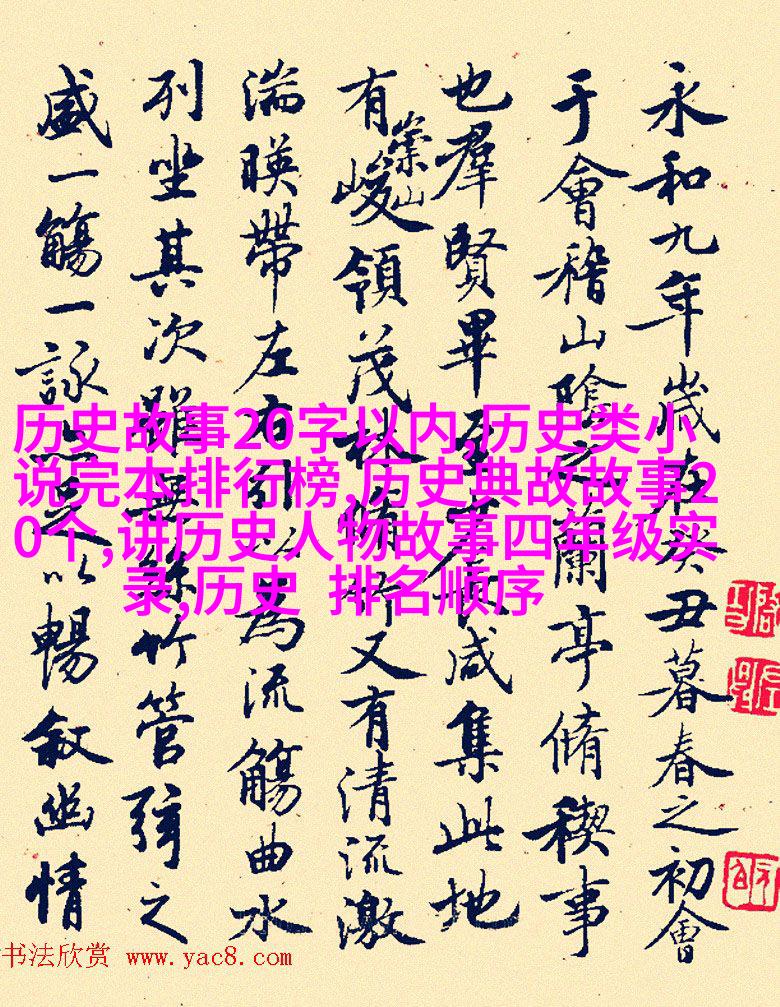 永和九年歲在癸丑暮春之初會
于會稽山陰之蘭亭脩稧事
也羣賢畢至少長咸集此地
有崇山峻領茂林脩竹又有清流激
湍暎帶左右引以為流觴曲水
列坐其次雖無絲竹管弦之
盛一觴一詠亦足以暢敘幽情
历史故事20字以内,历史类小
说完本排行榜,历史典故故事2
0个,讲历史人物故事四年级实
录,历史 排名顺序
书法欣赏 www.yac8.com